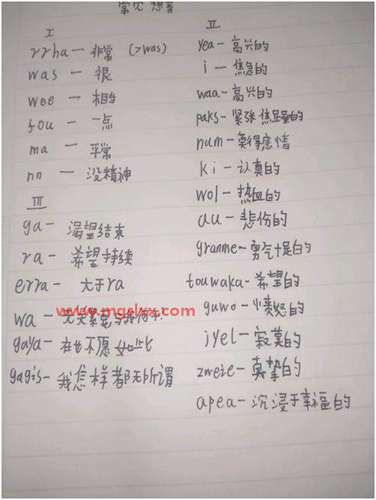 常见想音
I
rrha — 非常 (>was)
was — 很
wee — 相当
fou — 一点
ma — 平常
nn — 没精神
III
ga — 渴望结束
ra — 希望持续
erra — 大于ra
wa —
www.mgslxx.com
gaya — 不愿如此
gagis — 我怎样都无所谓
II
yea — 高兴的
i — 焦急的
waa — 高兴的
paks — 紧张焦虑的
num — 莫得感情
ki — 认真的
wol — 热血的
au — 悲伤的
granme — 勇气十足的
touwaka — 希望的
guwo — 愤怒的
iyel — 寂寞的
zweie — 真挚的
apea — 沉浸于幸福的